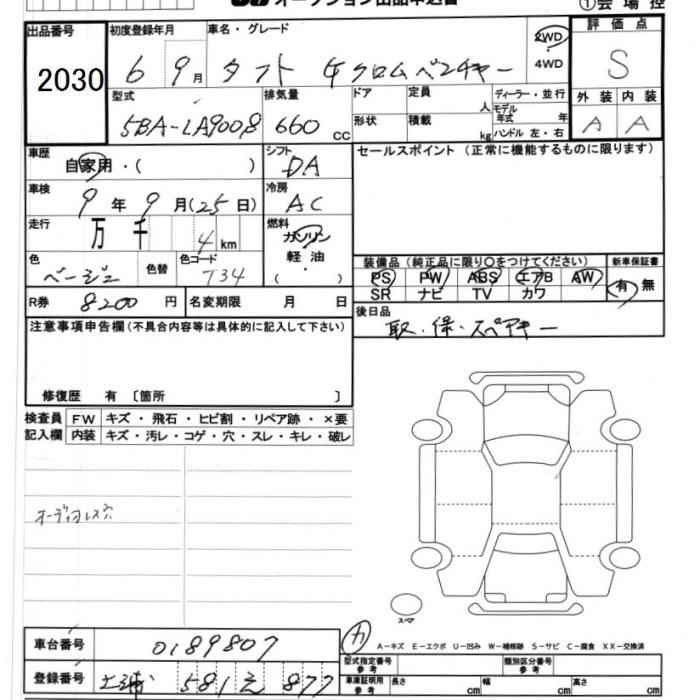 オークション出品申込書
①会場控
出品番号 2030
初度登録年月 6 9月
車名・グレード タフト G クロムベンチャー
2WD ・ 4WD
評価点 S
外装 内装
A A
型式 5BA-LA900S
排気量 660 cc
ドア 定員 人
形状 積載 kg
ディーラー・並行
モデル年式 年
ハンドル 左・右
車歴 自家用・( )
シフト DA
セールスポイント (正常に機能するものに限ります)
車検 9年 9月(25日)
冷房 AC
走行 万 千 4km
燃料 ガソリン 軽油・( )
色 ベージュ 色替 色コード T34
装備品(純正品に限り〇をつけてください) 新車保証書
PS PW ABS エアB AW 有 無
SR ナビ TV カワ
R券 8200 円 名変期限 月 日
後日品
取・保・スペアキー
注意事項申告欄(不具合内容等は具体的に記入して下さい)
修復歴 有〔箇所 〕
検査員 FW キズ・飛石・ヒビ割・リペア跡・×要
記入欄 内装 キズ・汚レ・コゲ・穴・スレ・キレ・破レ
オーディオレス穴
スペア
A-キズ E-エクボ U-凹み W-補修跡 S-サビ C-腐食 XX-交換済
車台番号 0189807
型式指定番号 参考 類別区分番号 参考
登録番号 土浦 581 え 877
車庫証明用 参考 長さ cm 幅 cm 高さ cm